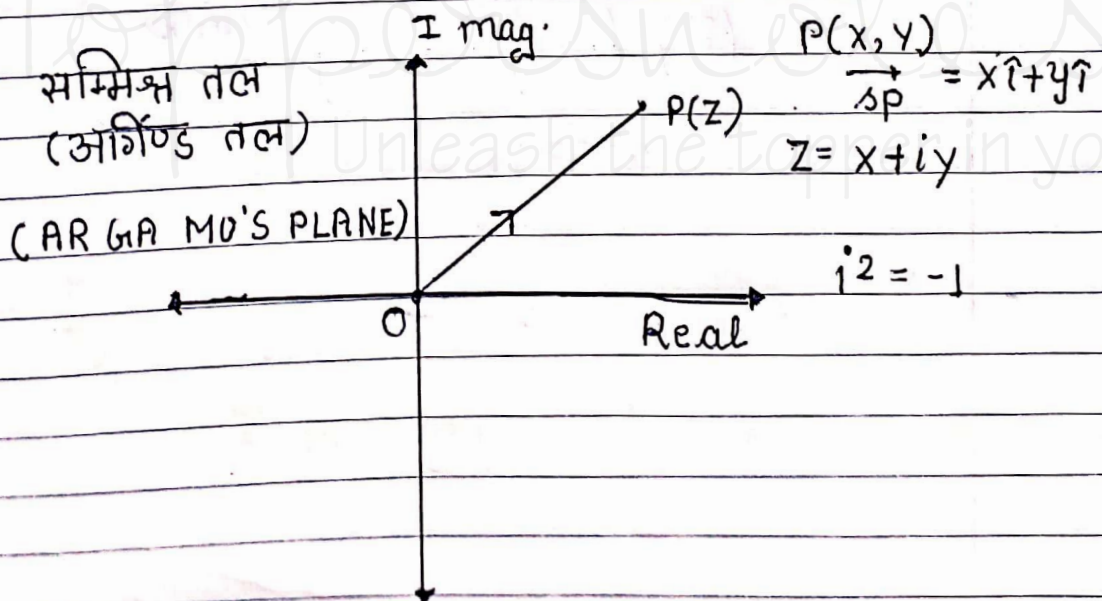 I mag.
सम्मिश्र तल
(अर्गिण्ड तल)
(AR GA MO'S PLANE)
P(Z)
O
Real
P(x, y)
sp = xî+yî
Z = x + iy
i2 = -1
Unleash the topper in yo